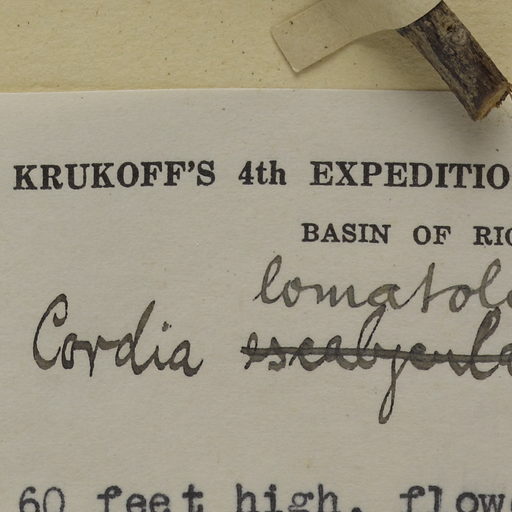 KRUKOFF'S 4th EXPEDITIO
BASIN OF RIO
lomatolo
Cordia
60 feet high, flow